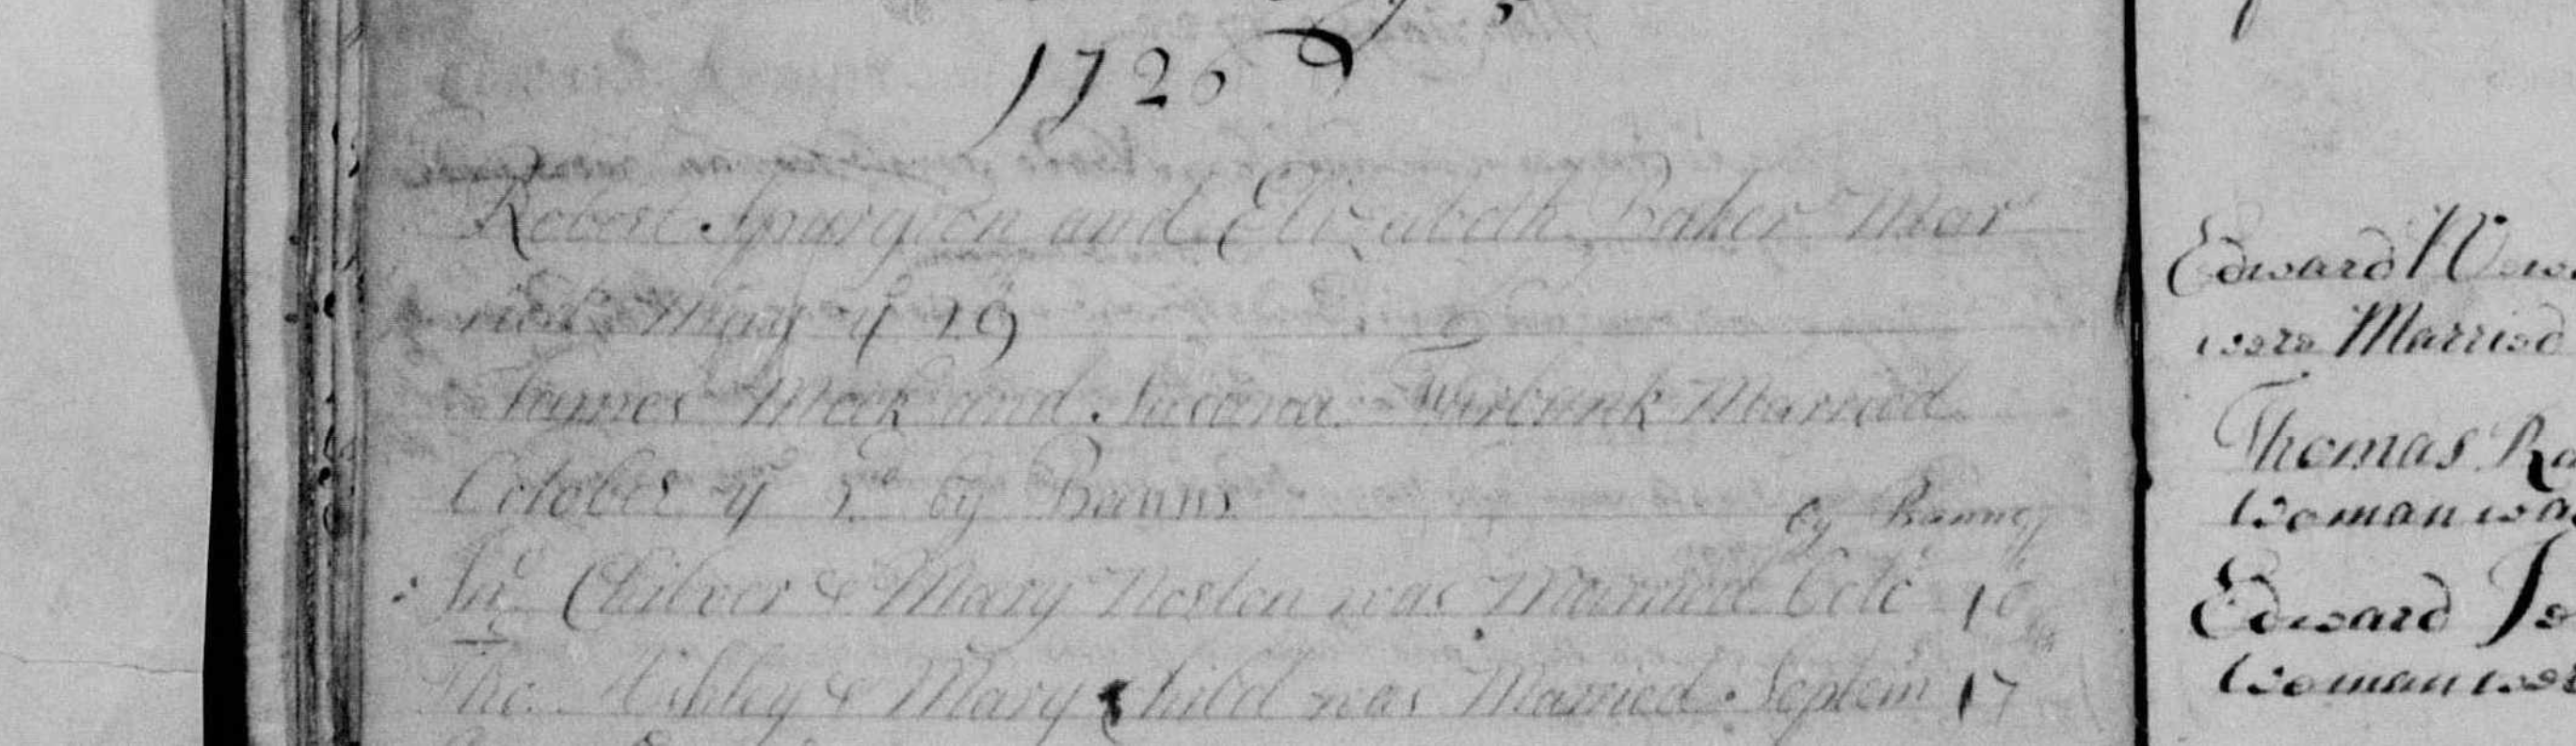 1726
Robert Spurgeon and Elizabeth Baker Mar
ried May ye 29
James Meek and Susanna Firbank Married
October ye 2d by Banns
by Banns
Jno Chilver & Mary Norton was Married Octo 10
Tho. Ashley & Mary Child was Married Septem 17
Edward
were Married
Thomas
woman
Edward
woman